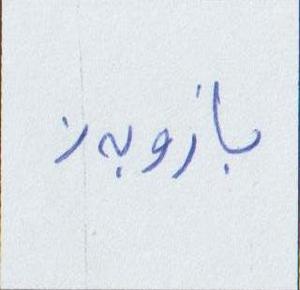 بازوبەز